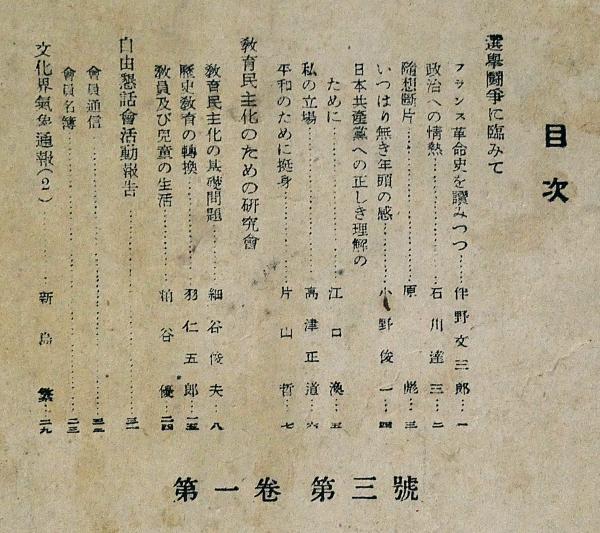 目次
選擧鬪爭に臨みて
フランス革命史を讀みつつ……伴野文三郎…一
政治への情熱……石川達三…二
隨想斷片……原　彪…三
いつはり無き年頭の感……小野俊一…四
日本共產黨への正しき理解の
ために……江口渙…五
私の立場……高津正道…六
平和のために挺身……片山哲…七
敎育民主化のための硏究會
敎育民主化の基礎問題……細谷俊夫…八
歷史敎育の轉換……羽仁五郎…一五
敎員及び兒童の生活……粕谷優…二四
自由懇話會活動報告……三一
會員通信……三二
會員名簿……二三
文化界氣象通報（2）……新島繁…二九
第一卷　第三號